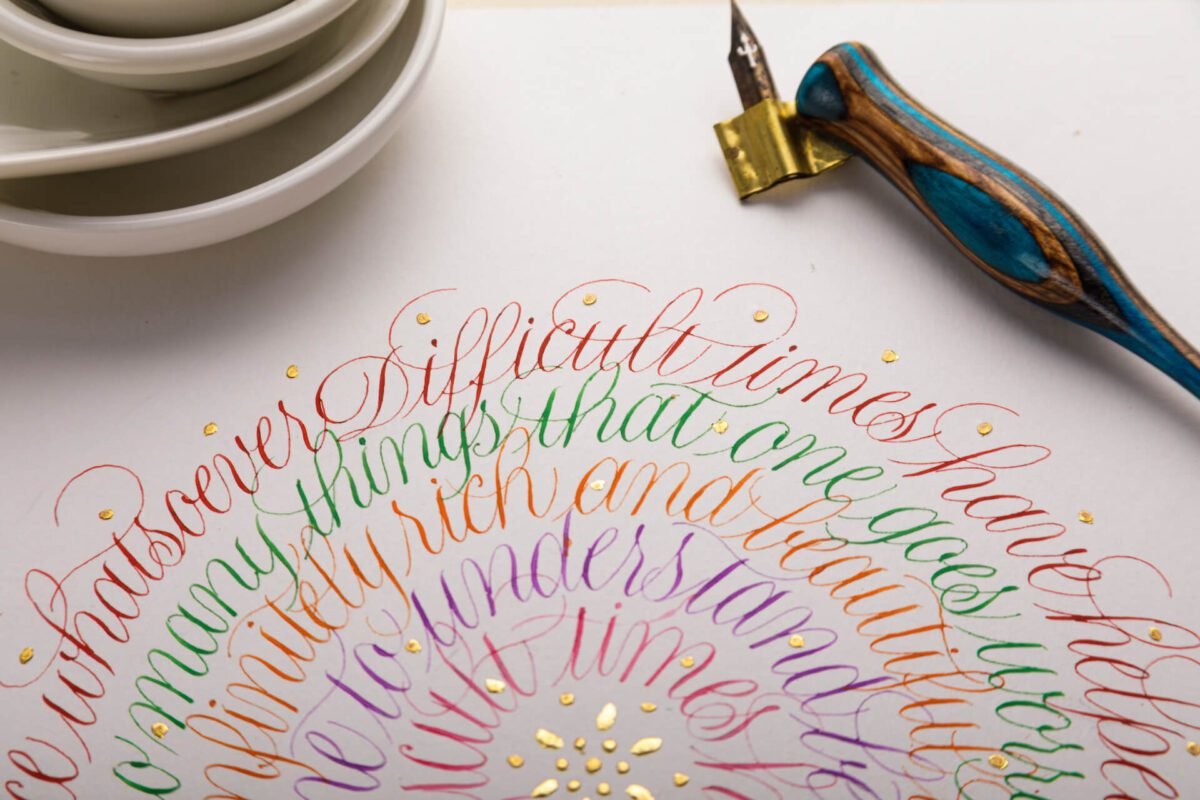 whatsoever Difficult times have helped
many things that one goes worr
infinitely rich and beautiful
to understand
times